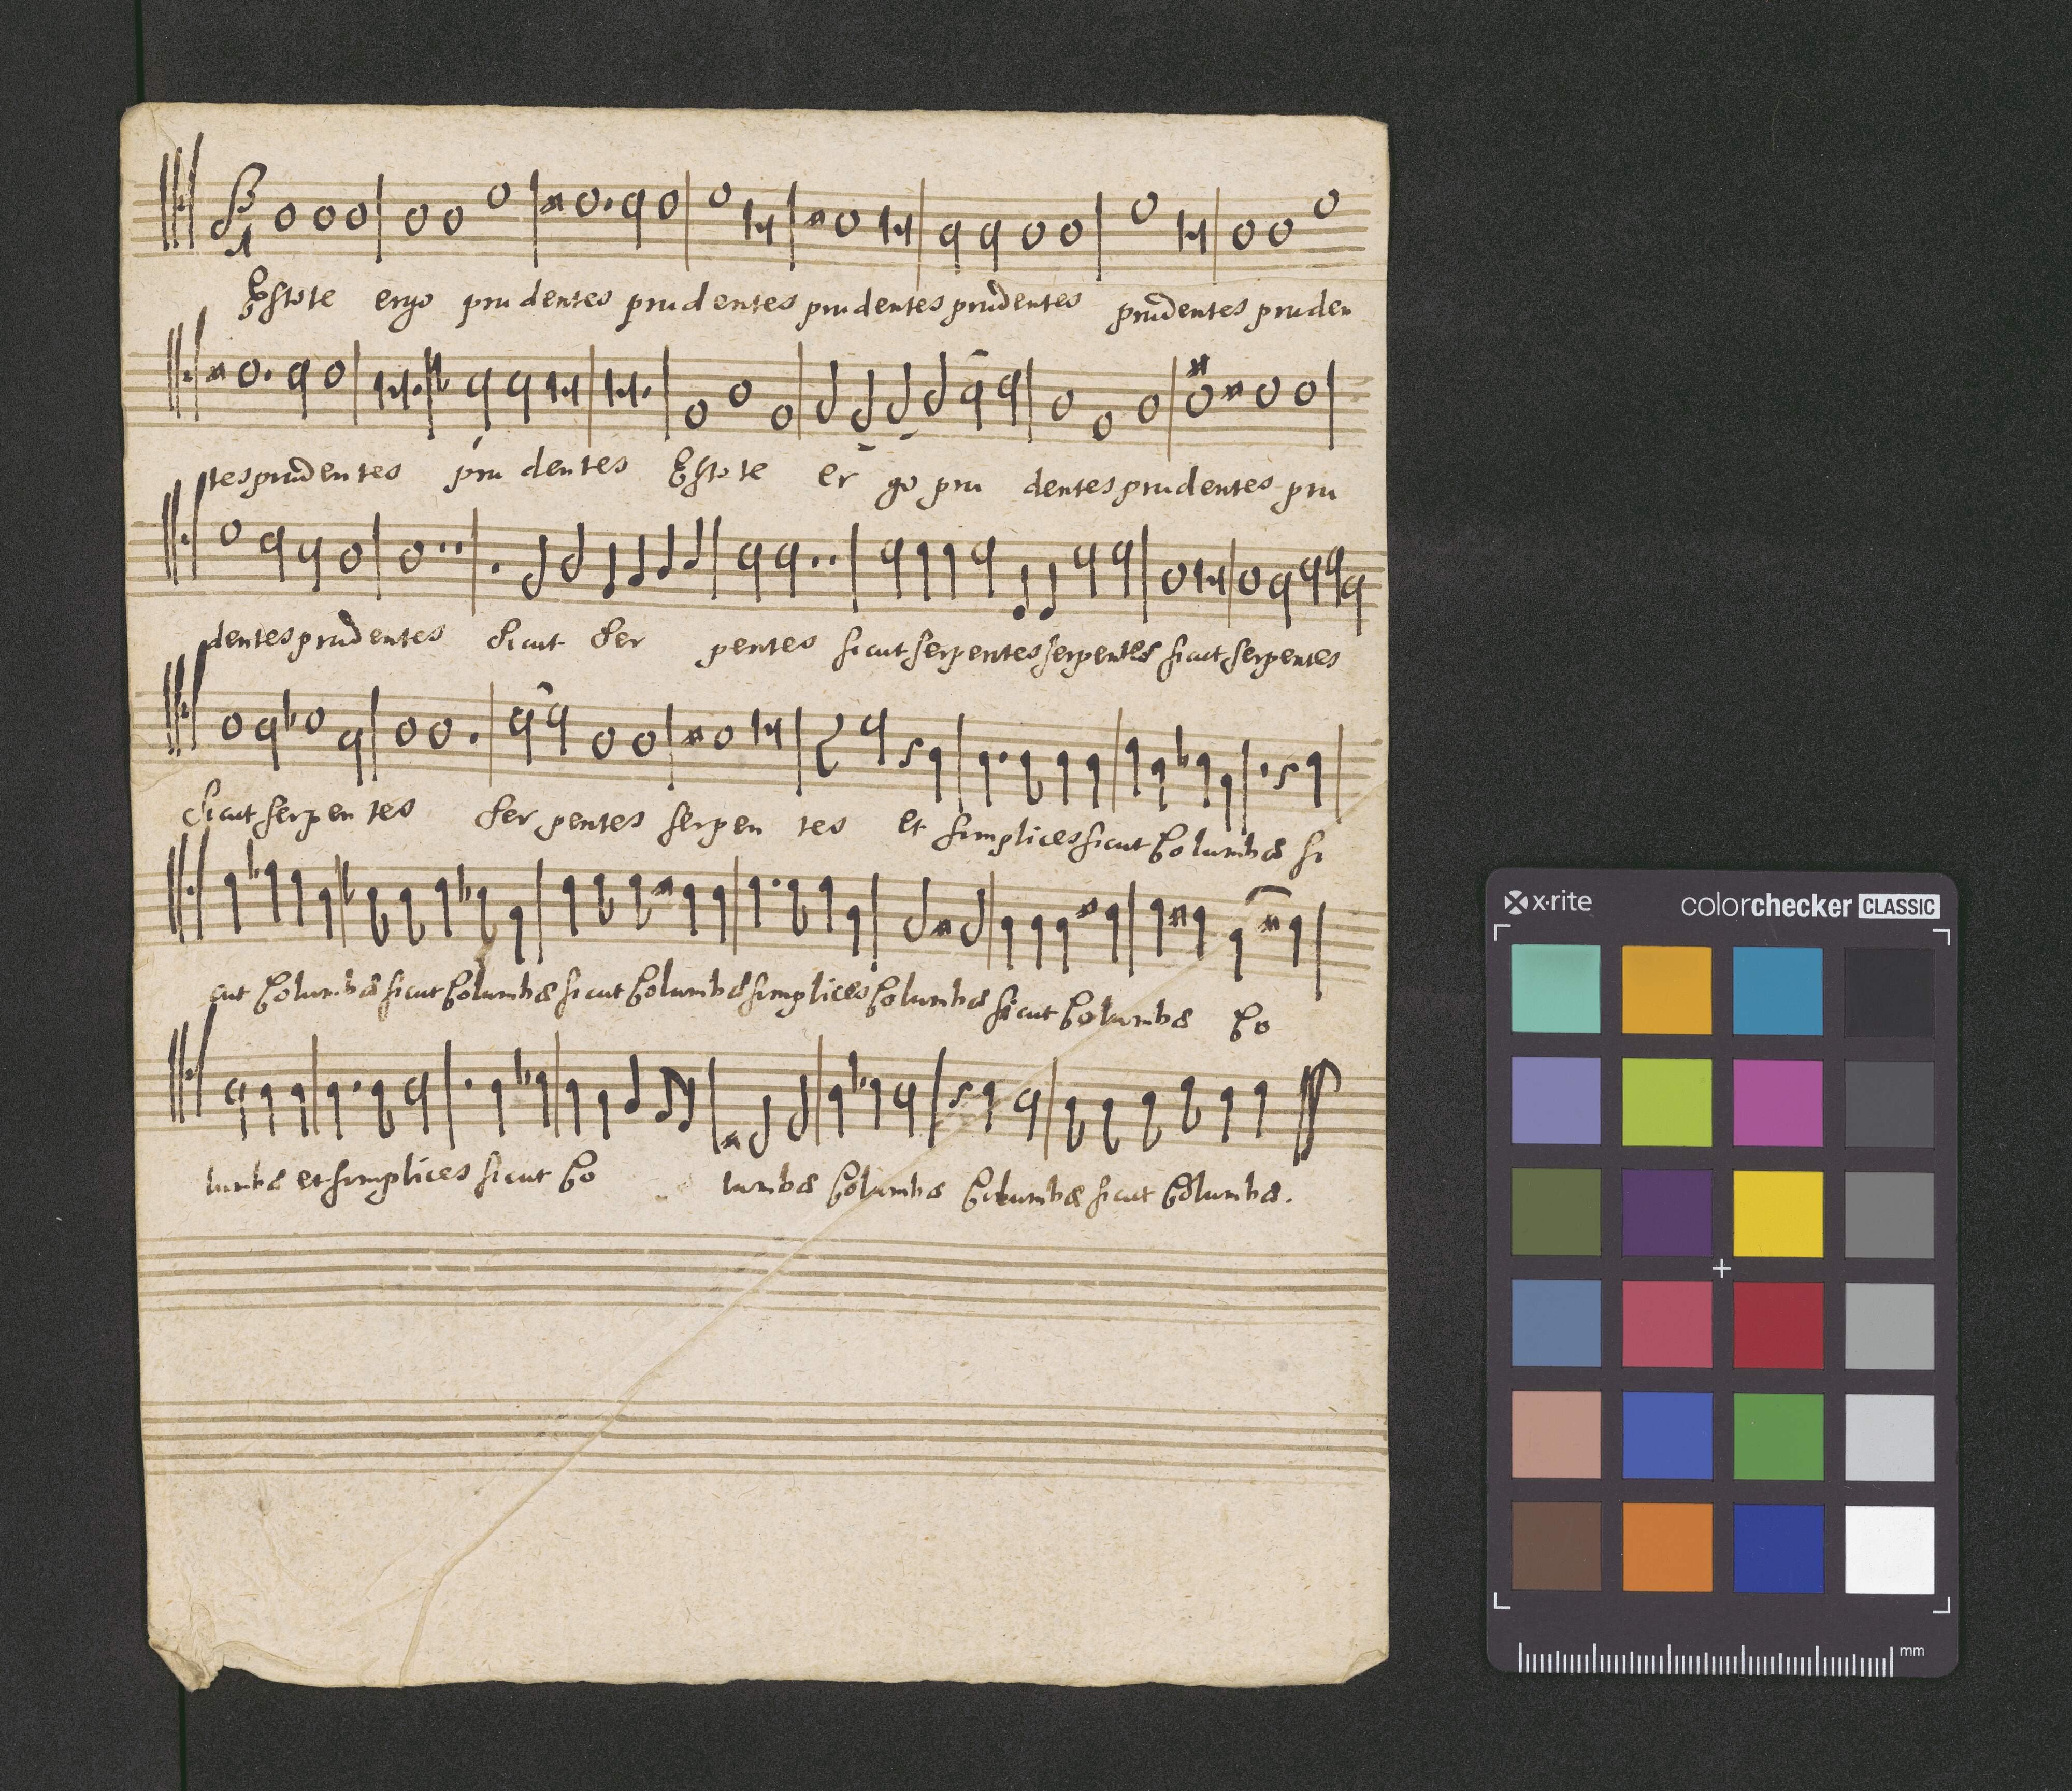 Estote ergo prudentes prudentes prudentes prudentes prudentes pruden
tes prudentes prudentes Estote ergo prudentes prudentes pru
dentes prudentes sicut serpentes sicut serpentes serpentes sicut serpentes
sicut serpentes serpentes serpentes et simplices sicut Columbæ si
cut Columbæ sicut Columbæ sicut Columbæ simplices Columbæ sicut Columbæ Co
lumbæ et simplices sicut Co lumbæ Columbæ Columbæ sicut Columbæ.
x-rite colorchecker CLASSIC
mm